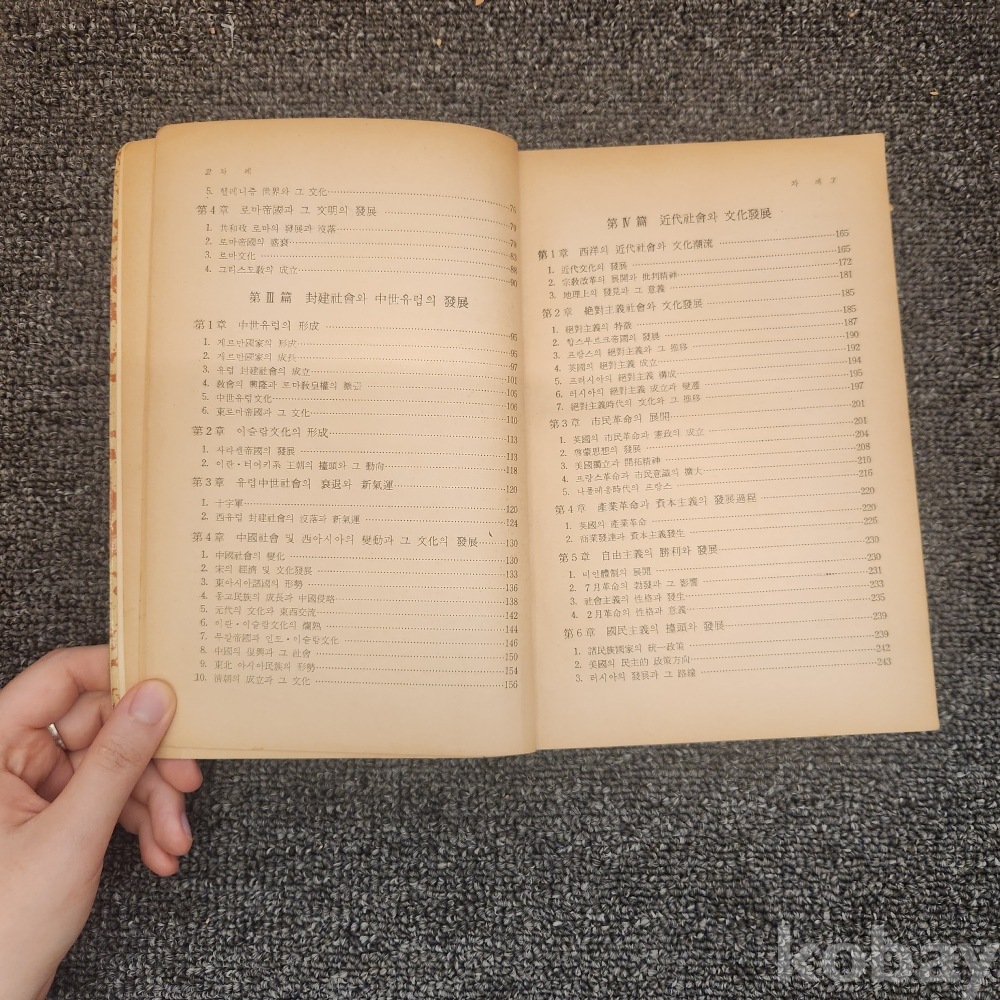 2 차 례
5. 헬레니즘 世界와 그 文化 76
第4章 로마帝國과 그 文明의 發展 79
1. 共和政 로마의 發展과 沒落 79
2. 로마帝國의 盛衰 83
3. 로마文化 88
4. 그리스도敎의 成立 90
第Ⅲ篇 封建社會와 中世유럽의 發展
第1章 中世유럽의 形成 95
1. 게르만國家의 形成 95
2. 게르만國家의 成長 97
3. 유럽 封建社會의 成立 101
4. 敎會의 興隆과 로마敎皇權의 105
5. 中世유럽文化 106
6. 東로마帝國과 그 文化 110
第2章 이슬람文化의 形成 113
1. 사라센帝國의 發展 113
2. 이란·터어키系 王朝의 擡頭와 그 動向 118
第3章 유럽中世社會의 衰退와 新氣運 120
1. 十字軍 120
2. 西유럽 封建社會의 沒落과 新氣運 124
第4章 中國社會 및 西아시아의 變動과 그 文化의 發展 130
1. 中國社會의 變化 130
2. 宋의 經濟 및 文化發展 133
3. 東아시아諸國의 形勢 136
4. 몽고民族의 成長과 中國侵略 138
5. 元代의 文化와 東西交流 142
6. 이란·이슬람文化의 爛熟 144
7. 무갈帝國과 인도·이슬람文化 146
8. 中國의 復興과 그 社會 150
9. 東北 아시아民族의 形勢 154
10. 淸朝의 成立과 그 文化 156
차 례 3
第Ⅳ篇 近代社會와 文化發展
第1章 西洋의 近代社會와 文化潮流 165
1. 近代文化의 發展 165
2. 宗敎改革의 展開와 批判精神 172
3. 地理上의 發見과 그 意義 181
第2章 絶對主義社會와 文化發展 185
1. 絶對主義의 特徵 185
2. 합스부르크帝國의 發展 187
3. 프랑스의 絶對主義와 그 推移 190
4. 英國의 絶對主義 成立 192
5. 프러시아의 絶對主義 構成 194
6. 러시아의 絶對主義 成立과 變遷 195
7. 絶對主義時代의 文化와 그 推移 197
第3章 市民革命의 展開 201
1. 英國의 市民革命과 憲政의 成立 201
2. 啓蒙思想의 發展 204
3. 美國獨立과 開拓精神 208
4. 프랑스革命과 市民意識의 擴大 210
5. 나폴레옹時代의 프랑스 216
第4章 產業革命과 資本主義의 發展過程 220
1. 英國의 產業革命 220
2. 商業發達과 資本主義發生 226
第5章 自由主義의 勝利와 發展 230
1. 비인體制의 展開 230
2. 7月革命의 勃發과 그 影響 231
3. 社會主義의 性格과 發生 233
4. 2月革命의 性格과 意義 235
第6章 國民主義의 擡頭와 發展 239
1. 諸民族國家의 統一政策 239
2. 美國의 民主的 政策方向 242
3. 러시아의 發展과 그 路線 243
kobay